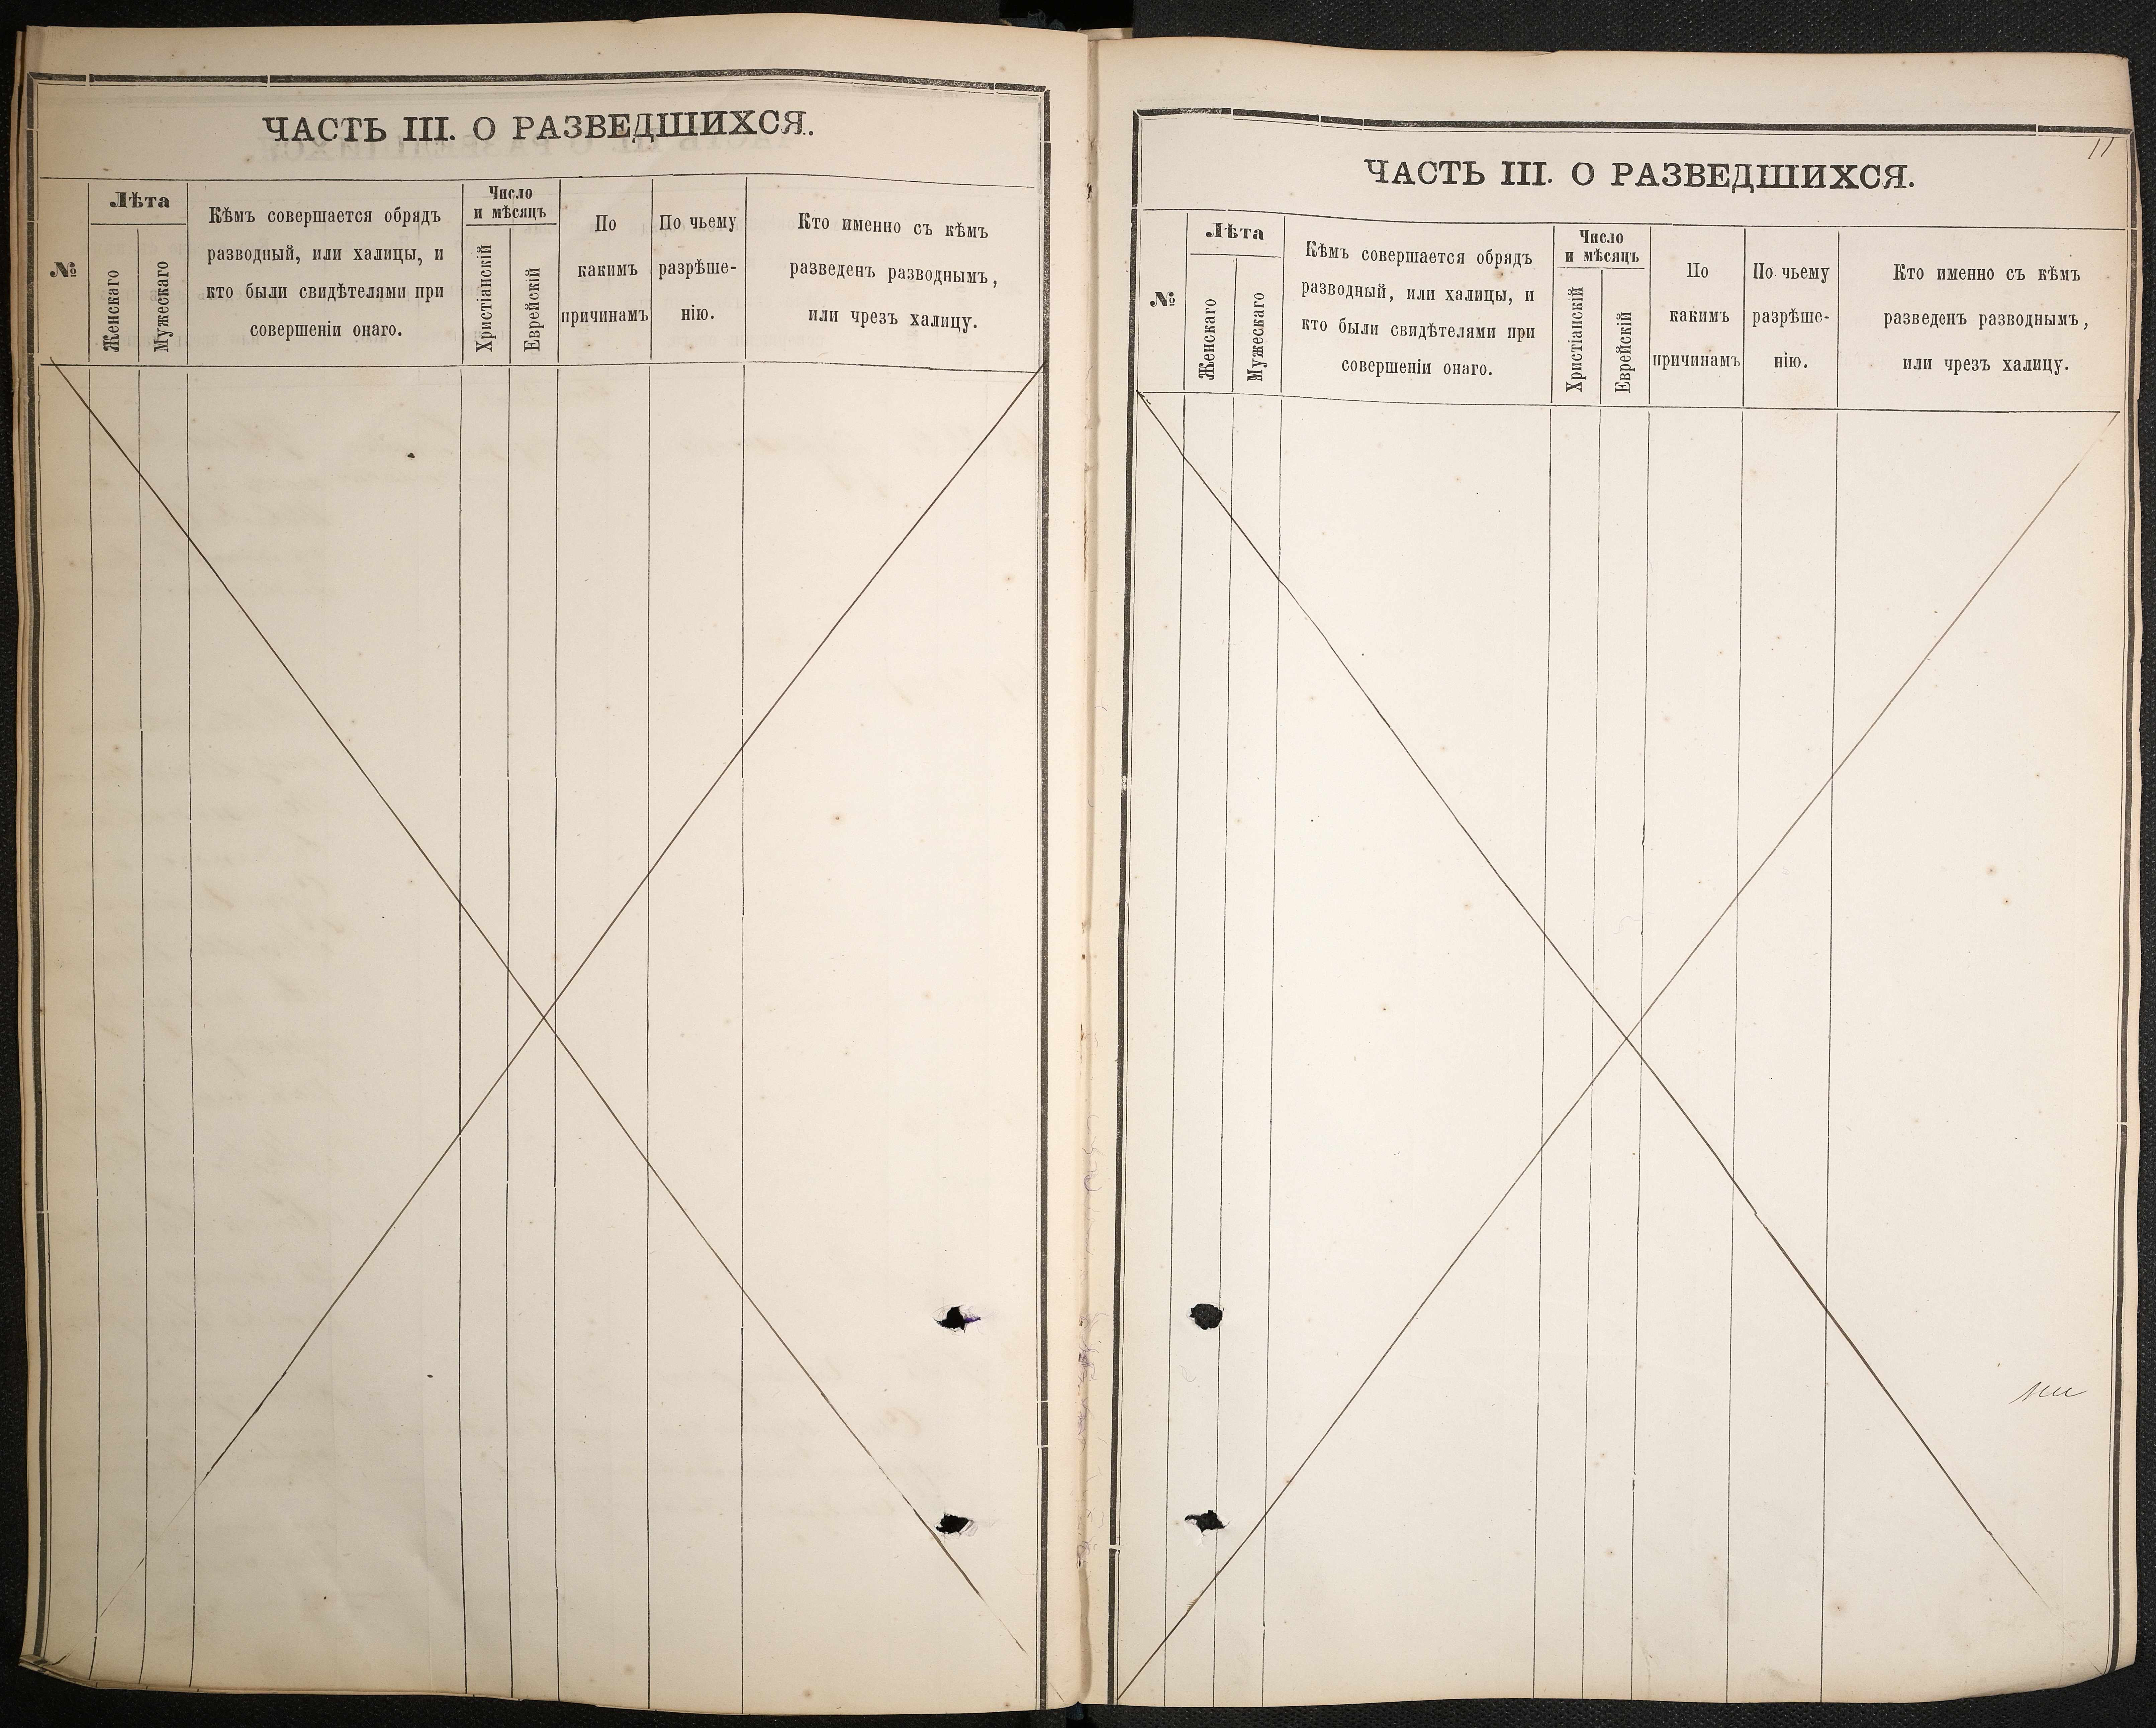 ЧАСТЬ III. О РАЗВЕДШИХСЯ.
№
Лѣта
Женскаго
Мужескаго
Кѣмъ совершается обрядъ
разводный, или халицы, и
кто были свидѣтелями при
совершеніи онаго.
Число
и мѣсяцъ
Христіанскій
Еврейскій
По
какимъ
причинамъ
По чьему
разрѣше-
нію.
Кто именно съ кѣмъ
разведенъ разводнымъ,
или чрезъ халицу.
11
ЧАСТЬ III. О РАЗВЕДШИХСЯ.
№
Лѣта
Женскаго
Мужескаго
Кѣмъ совершается обрядъ
разводный, или халицы, и
кто были свидѣтелями при
совершеніи онаго.
Число
и мѣсяцъ
Христіанскій
Еврейскій
По
какимъ
причинамъ
По чьему
разрѣше-
нію.
Кто именно съ кѣмъ
разведенъ разводнымъ,
или чрезъ халицу.